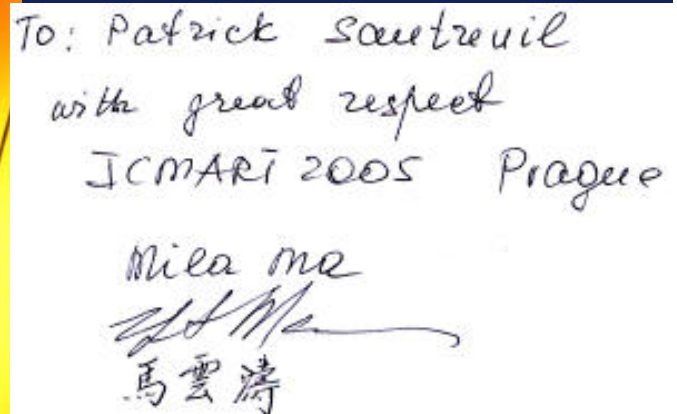 To: Patrick Sautreuil
with great respect
ICMART 2005 Prague
Mila Ma
馬雲濤